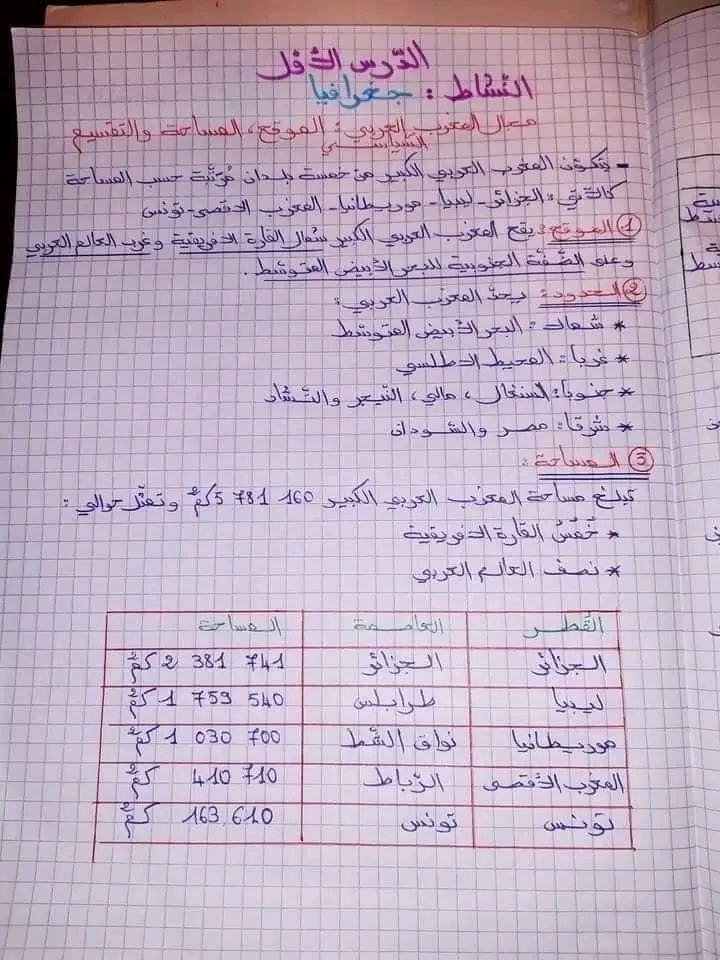 الدّرس الأوّل
النّشاط : جغرافيا
مجال المغرب العربي : الموقع، المساحة والتقسيم
السّياسي
- يتكوّن المغرب العربي الكبير من خمسة بلدان مُرتّبة حسب المساحة
كالآتي: الجزائر- ليبيا- موريطانيا- المغرب الأقصى- تونس
① الموقع : يقع المغرب العربي الكبير شمال القارة الإفريقية وغرب العالم العربي
وعلى الضّفّة الجنوبية للبحر الأبيض المتوسّط .
② الحدود: يحدّ المغرب العربي:
* شمالا: البحر الأبيض المتوسّط
* غربا: المحيط الأطلسي
* جنوبا: السنغال، مالي، النّيجر والتّشاد
* شرقا: مصر والسّودان
③ المساحة:
تبلغ مساحة المغرب العربي الكبير 160 781 5 كم² وتمثّل حوالي :
* خُمُسُ القارة الإفريقية
* نصف العالم العربي
القُطر العاصمة المساحة
الجزائر الجزائر 2 381 741 كم²
ليبيا طرابلس 1 759 540 كم²
موريطانيا نواق الشّط 1 030 700 كم²
المغرب الأقصى الرّباط 410 710 كم²
تونس تونس 163.610 كم²